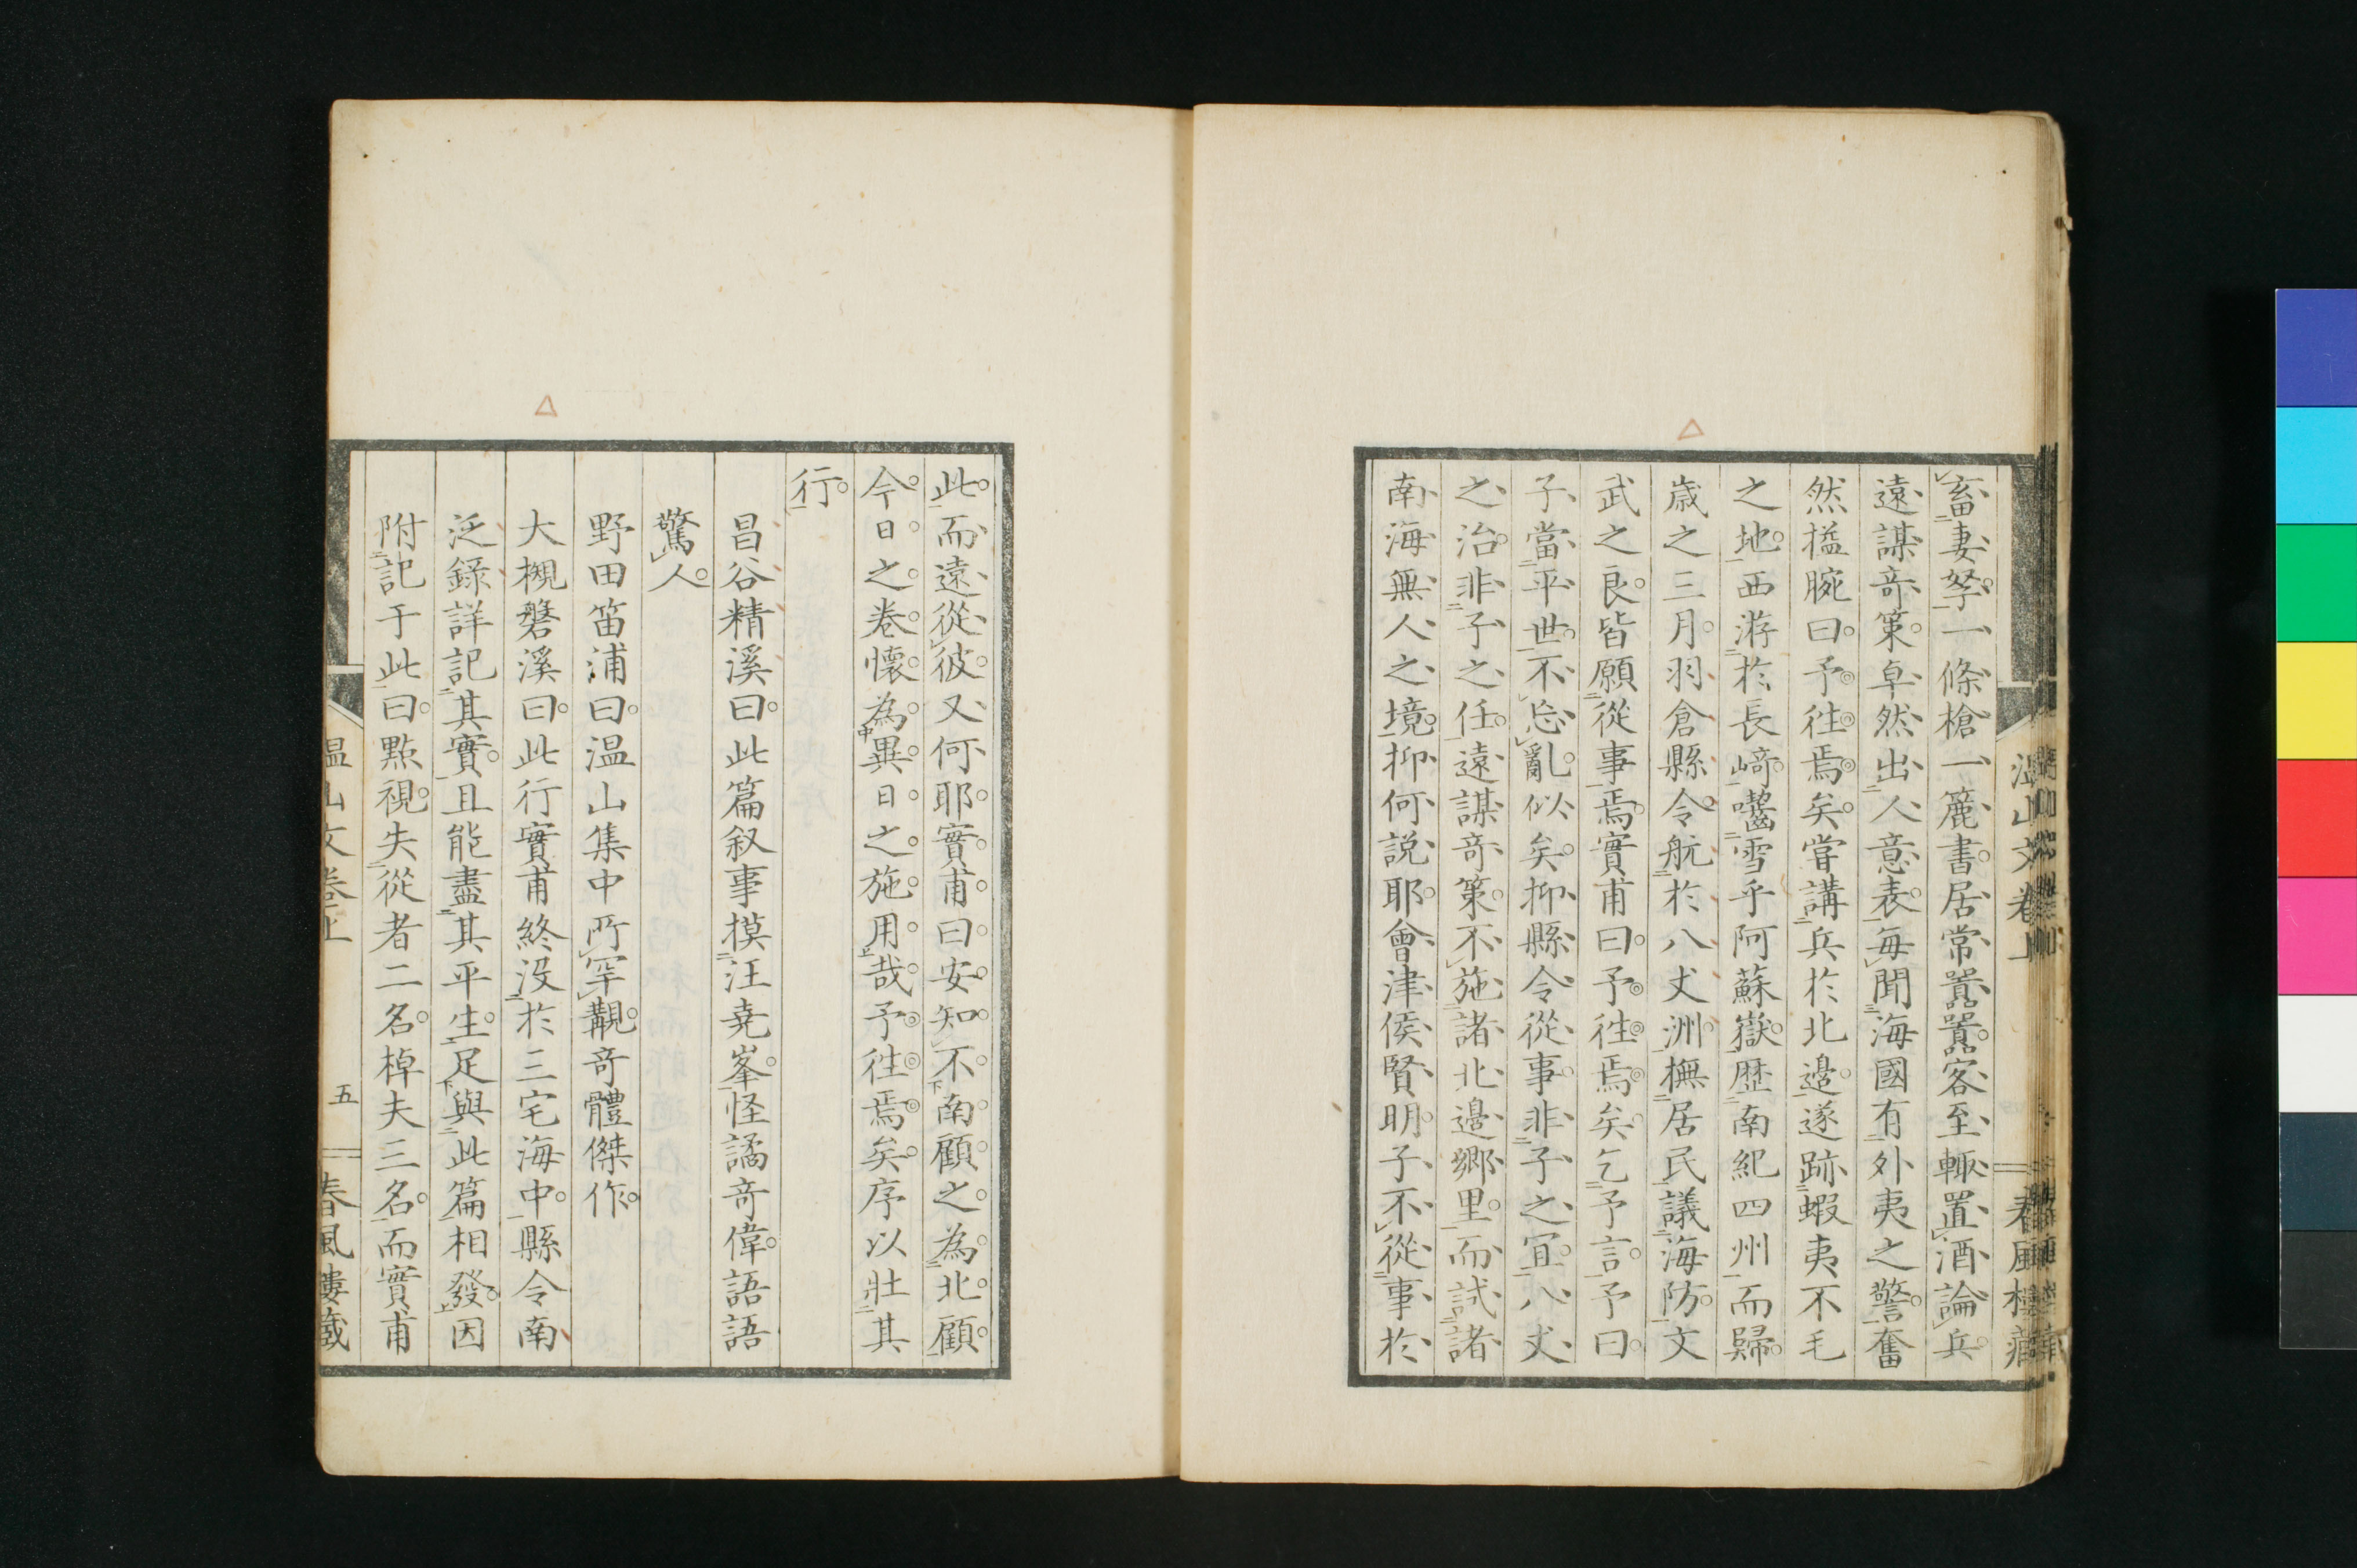 畜妻孥一條槍一簏書居常囂囂客至輙置酒論兵
遠謀竒策卓然出人意表每聞海國有外夷之警奮
然搤腕曰予徃焉矣甞講兵於北邉遂跡蝦夷不毛
之地西游於長﨑嚙雪乎阿蘇嶽歴南紀四州而歸
歳之三月羽倉縣令航於八丈洲撫居民議海防文
武之良皆願從事焉實甫曰予徃焉矣乞予言予曰
子當平世不忘亂似矣抑縣令從事非子之宜八丈
之治非子之任遠謀竒策不施諸北邉郷里而試諸
南海無人之境抑何説耶會津侯賢明子不從事於
温山文卷上
此而遠從彼又何耶實甫曰安知不南顧之為北顧
今日之卷懷為異日之施用哉予徃焉矣序以壯其
行
昌谷精溪曰此篇叙事摸汪堯峯怪譎竒偉語語
驚人
野田笛浦曰温山集中所罕覯竒體傑作
大槻磐溪曰此行實甫終沒於三宅海中縣令南
泛錄詳記其實且能盡其平生足與此篇相發因
附記于此曰㸃視失從者二名棹夫三名而實甫
温山文卷上
五
春風樓藏